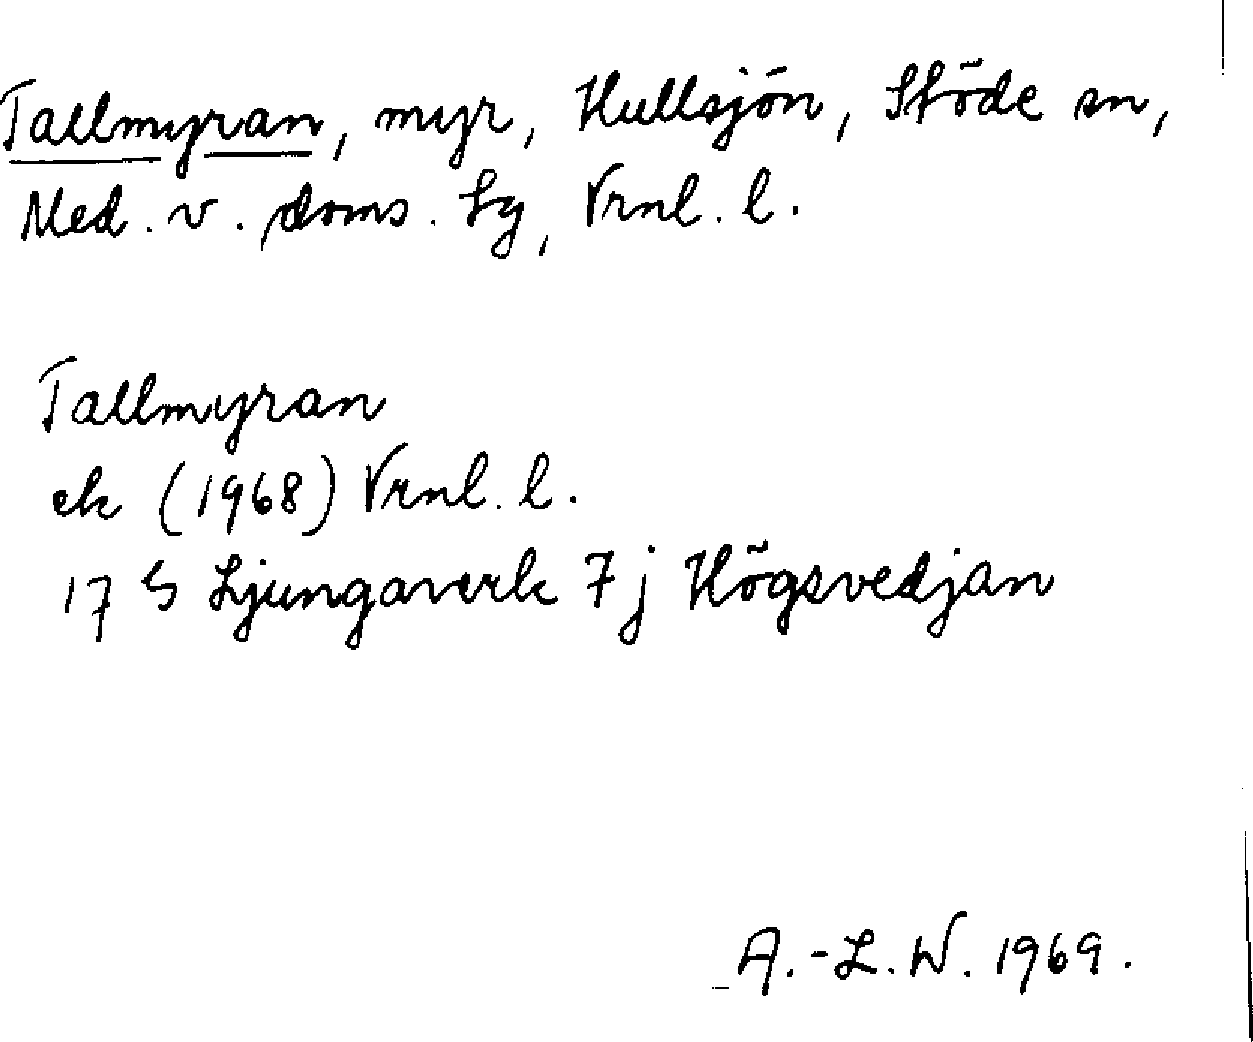 Tallmyran, myr, Hullsjön, Stöde sn,
Med. v. doms. lg, Vrnl. l.
Tallmyran
ek (1968) Vrnl. l.
17 G Ljungaverk 7 j Högsvedjan
A.-L. W. 1969.